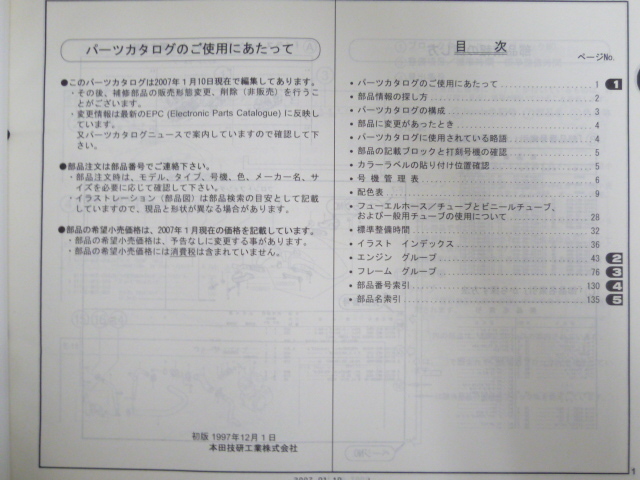 パーツカタログのご使用にあたって
●このパーツカタログは2007年1月10日現在で編集してあります。
・その後、補修部品の販売形態変更、削除（非販売）を行うこ
とがございます。
・変更情報は最新のEPC (Electronic Parts Catalogue) に反映し
ています。
又パーツカタログニュースで案内していますので確認して下
さい。
●部品注文は部品番号でご連絡下さい。
・部品注文時は、モデル、タイプ、号機、色、メーカー名、サ
イズを必要に応じて確認して下さい。
・イラストレーション（部品図）は部品検索の目安として記載
していますので、現品と形状が異なる場合があります。
●部品の希望小売価格は、2007年1月現在の価格を記載しています。
・部品の希望小売価格は、予告なしに変更する事があります。
・部品の希望小売価格には消費税は含まれていません。
初版 1997年12月1日
本田技研工業株式会社
目 次
ページNo.
・パーツカタログのご使用にあたって 1 1
・部品情報の探し方 2
・パーツカタログの構成 3
・部品に変更があったとき 4
・パーツカタログに使用されている略語 4
・部品の記載ブロックと打刻号機の確認 5
・カラーラベルの貼り付け位置確認 5
・号機管理表 6
・配色表 9
・フューエルホース／チューブとビニールチューブ、
および一般用チューブの使用について 28
・標準整備時間 32
・イラスト インデックス 36
・エンジン グループ 43 2
・フレーム グループ 76 3
・部品番号索引 130 4
・部品名索引 135 5
1